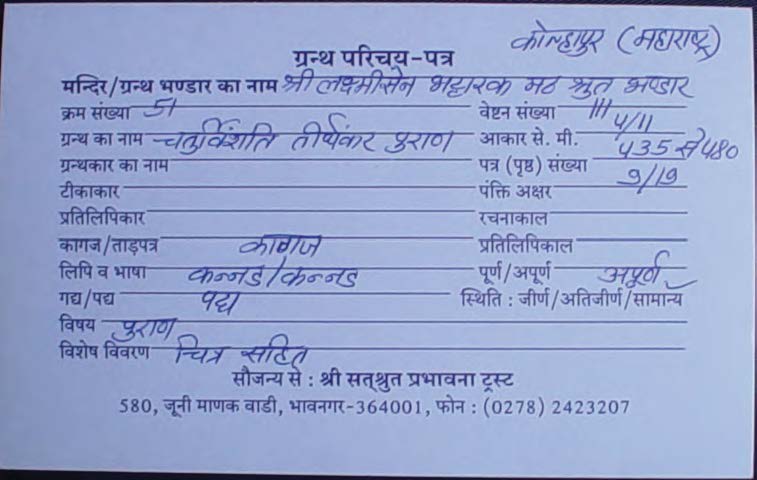 कोल्हापुर (महाराष्ट्र)
ग्रन्थ परिचय-पत्र
मन्दिर/ग्रन्थ भण्डार का नाम श्री लक्ष्मीसेन भट्टारक मठ श्रुत भण्डार
क्रम संख्या 51 वेष्टन संख्या III
ग्रन्थ का नाम चतुर्विंशति तीर्थंकर पुराण आकार से. मी. 4/11
ग्रन्थकार का नाम पत्र (पृष्ठ) संख्या 435 से 480
टीकाकार पंक्ति अक्षर 9/19
प्रतिलिपिकार रचनाकाल
कागज/ताड़पत्र कागज प्रतिलिपिकाल
लिपि व भाषा कन्नड/कन्नड पूर्ण/अपूर्ण अपूर्ण
गद्य/पद्य पद्य स्थिति : जीर्ण/अतिजीर्ण/सामान्य
विषय पुराण
विशेष विवरण चित्र सहित
सौजन्य से : श्री सत्श्रुत प्रभावना ट्रस्ट
580, जूनी माणक वाडी, भावनगर-364001, फोन : (0278) 2423207